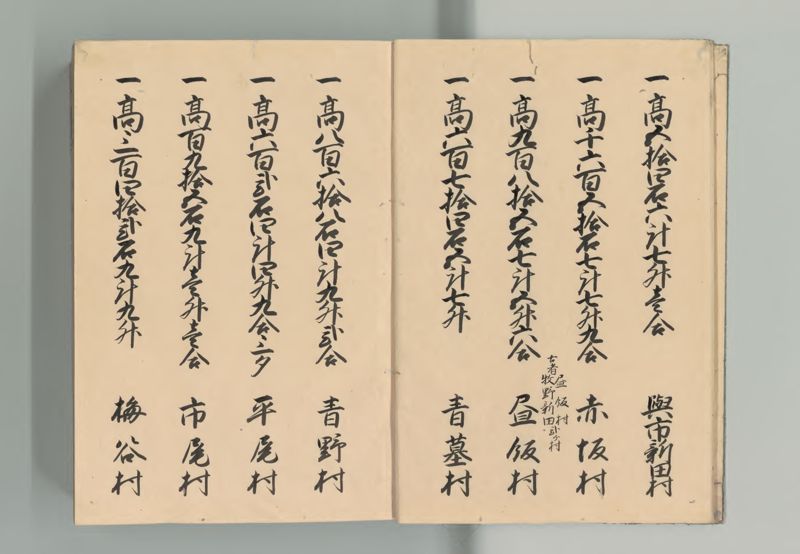 一高五拾四石六斗七升壱合 與市新田村
一高千六百五拾石七斗七升九合 赤坂村
一高九百八拾五石七斗五升六合 昼飯村
古者昼飯村
牧野新田弐ケ村
一高六百七拾四石五斗七升 青墓村
一高八百六拾八石四斗九升弐合 青野村
一高六百弐石四斗四升九合三夕 平尾村
一高百九拾五石九斗壱升壱合 市尾村
一高三百四拾弐石九斗九升 梅谷村